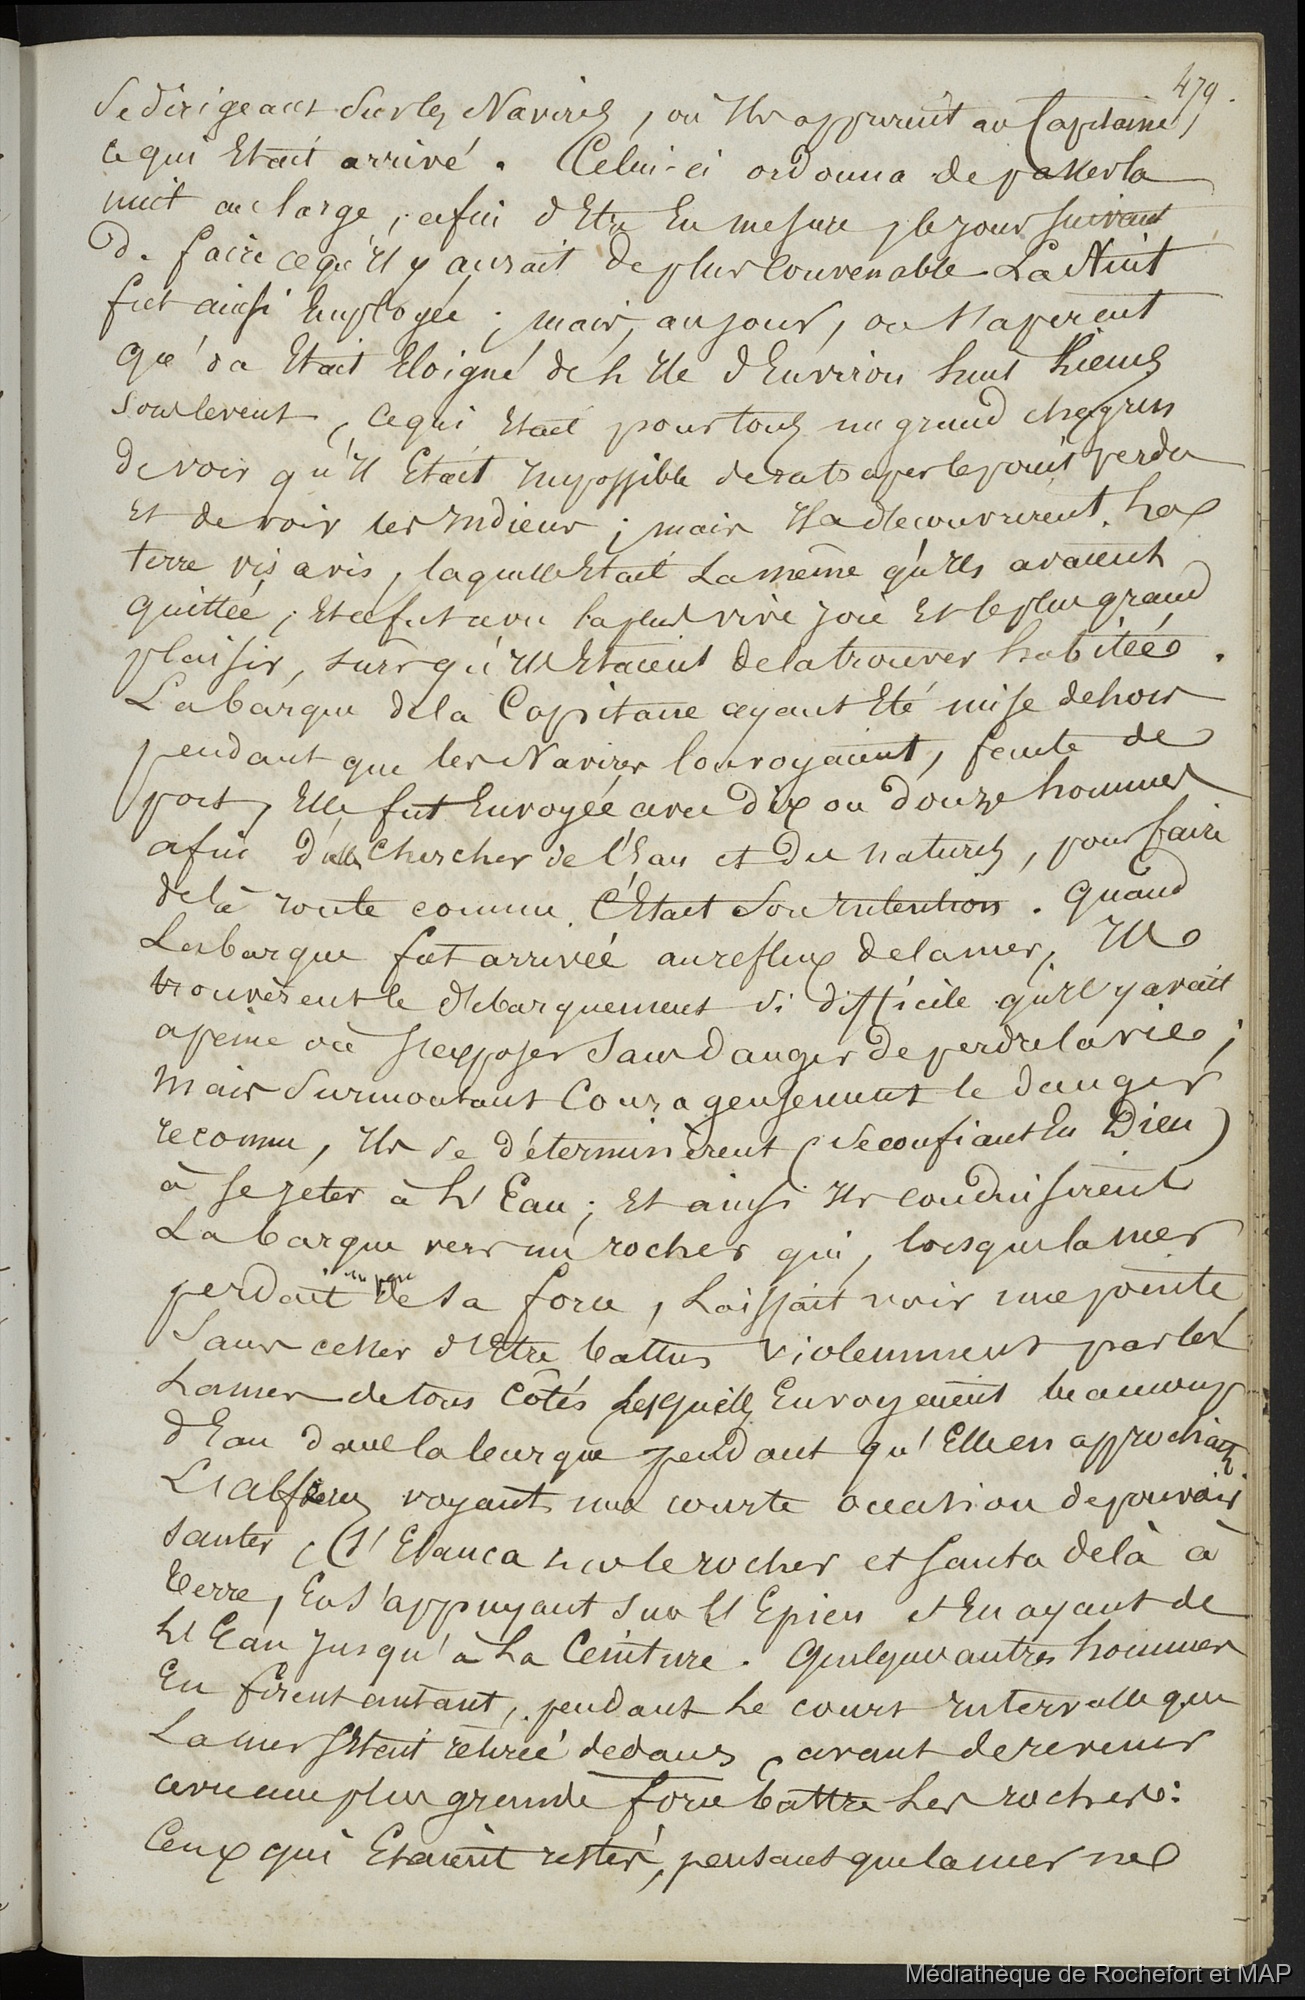 479.
se dirigeant sur les Navires, où ils apprirent au Capitaine,
ce qui Etait arrivé. Celui-ci ordonna de passer la
nuit au large, afin d'Etre En mesure, le jour suivant
de faire ce qu'il y aurait de plus Convenable. La Nuit
fut ainsi Employée; mais, au jour, on s'aperçut
qu'on Etait Eloigné de l'Ile d'Environ huit lieues
sous le vent, ce qui Etait pour tous un grand chagrin
de voir qu'il Etait Impossible de rattraper le point perdu
Et de voir les Indiens; mais ils découvrirent la
terre vis à vis, laquelle Etait la même qu'ils avaient
quittée; Et ce fut avec la plus vive joie Et le plus grand
plaisir, surs qu'ils Etaient de la trouver habitée.
La barque de la Capitane ayant Eté mise dehors
pendant que les Navires louvoyaient, faute de
port, Elle fut Envoyée avec Dix ou douze hommes
afin d'aller Chercher de l'Eau et des naturels, pour faire
de là route comme C'Etait Son Intention. Quand
La barque fut arrivée au reflux de la mer, Ils
trouvèrent le débarquement si difficile qu'il y avait
à peine où s'exposer sans Danger de perdre la vie;
Mais Surmontant Courageusement le danger
reconnu, Ils se déterminèrent (se confiant En Dieu)
à se jeter à l'Eau; Et ainsi Ils conduisirent
La barque vers un rocher qui, lorsque la mer
perdait un peu de sa force, Laissait voir une pointe
Sans cesser d'Etre battus violemment par les
La mer de tous Côtés lesquelles Envoyaient beaucoup
d'Eau dans la barque pendant qu'Elle en approchait
voyant une courte occasion de pouvoir
sauter, s'Elança sur le rocher et sauta de là à
terre, En s'appuyant sur l'Epieu et En ayant de
l'Eau jusqu'à La Ceinture. Quelques autres hommes
En firent autant, pendant Le court Intervalle que
La mer s'Etait retirée dedans, avant de revenir
avec une plus grande force battre Les rochers:
Ceux qui Etaient restés, pensant que la mer ne
Médiathèque de Rochefort et MAP